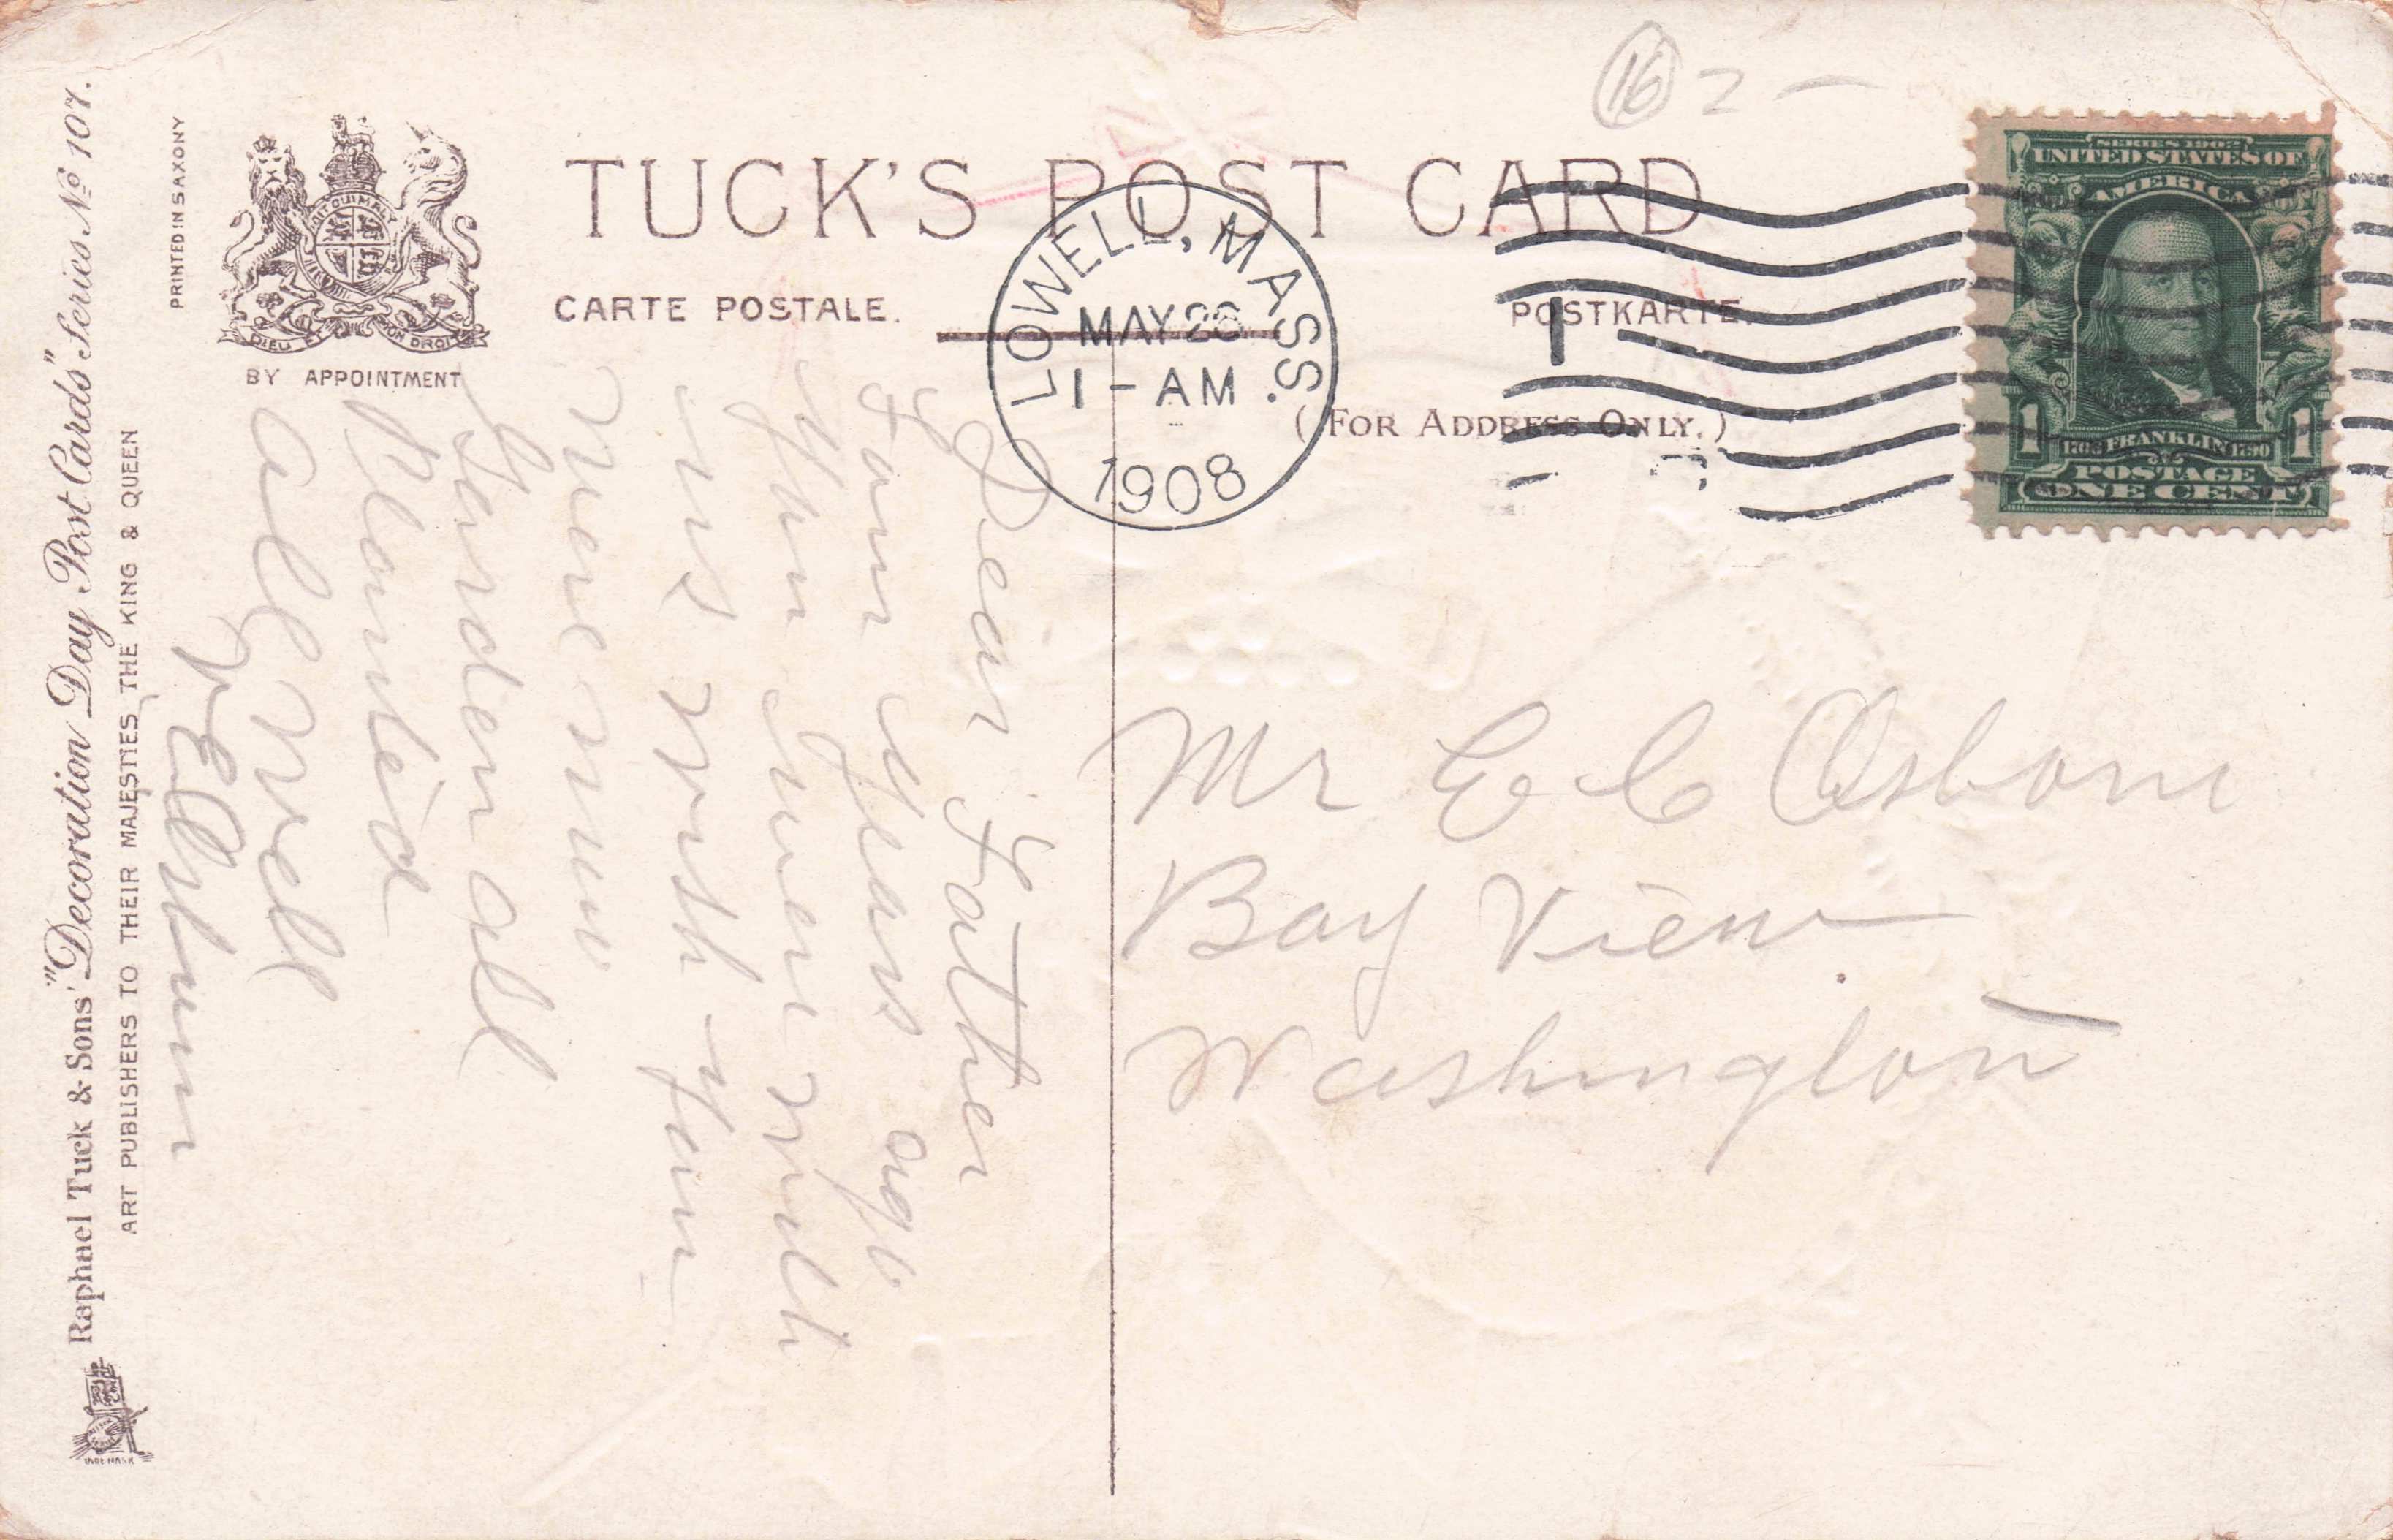 Raphael Tuck & Sons' "Decoration Day Post Cards" Series № 107.
ART PUBLISHERS TO THEIR MAJESTIES THE KING & QUEEN
PRINTED IN SAXONY
DIEU ET MON DROIT
BY APPOINTMENT
TUCK'S POST CARD
CARTE POSTALE.
POSTKARTE.
(FOR ADDRESS ONLY.)
LOWELL, MASS.
MAY 28
1-AM
1908
16 2 —
SERIES 1902
UNITED STATES OF
AMERICA
1 1
1706 FRANKLIN 1790
POSTAGE
ONE CENT
Dear Father
Four years ago
you were with
us wish you
were now
Garden all
Planted
all well
Mr E C Osborn
Bay View
Washington